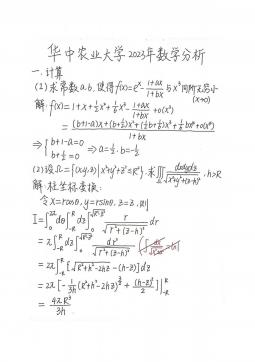 华中农业大学2023年数学分析
一.计算
(1)求常数a.b,使得f(x)=e^x-(1+ax)/(1+bx)与x^3同阶无穷小
(x→0)
解:f(x)=1+x+½x²+⅙x³-(1+ax)/(1+bx)+o(x³)
=((b+1-a)x+(b+½)x²+(½b+⅙)x³+⅙bx⁴+o(x³))/(1+bx)
⇒{b+1-a=0 b+½=0 ⇒a=½.b=-½
(2)设Ω={(x,y,z)|x²+y²+z²=R²}.求∭dxdydz/√(x²+y²+(z-h)²),h>R
解:柱坐标变换:
令x=rcosθ,y=rsinθ,z=z,则
I=∫₀^{2π}dθ∫_{-R}^{R}dz∫₀^{√(R²-z²)} r/√(r²+(z-h)²) dr
=π∫_{-R}^{R}dz∫₀^{√(R²-z²)} dr²/√(r²+(z-h)²)
=2π∫_{-R}^{R}[√(R²+h²-2hz)-(h-z)]dz
=2π[-1/(3h)(R²+h²-2hz)^{3/2}+(h-z)²/2]|_{-R}^{R}
=4πR³/3h